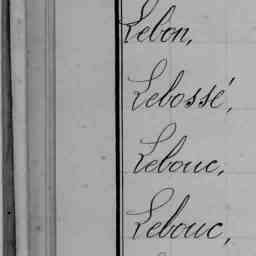 Lebon,
Lebossé,
Lebouc,
Lebouc,